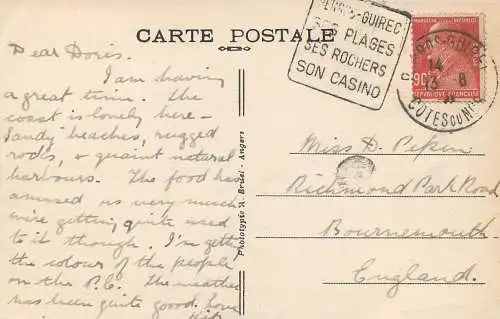 CARTE POSTALE
-GUIREC
SES PLAGES
SES ROCHERS
SON CASINO
14
8
COTES DU NORD
90c
REPUBLIQUE FRANÇAISE
Dear Doris.
I am having
a great time. The
coast is lovely here –
sandy beaches, rugged
rocks, & quaint natural
harbours. The food has
amused us very much
we're getting quite used
to it though. I'm getting
the colour of the people
on the P.C. The weather
has been quite good.
Miss D. Pepin
Richmond Park Road
Bournemouth
England.
Phototypie A. Bruel - Angers